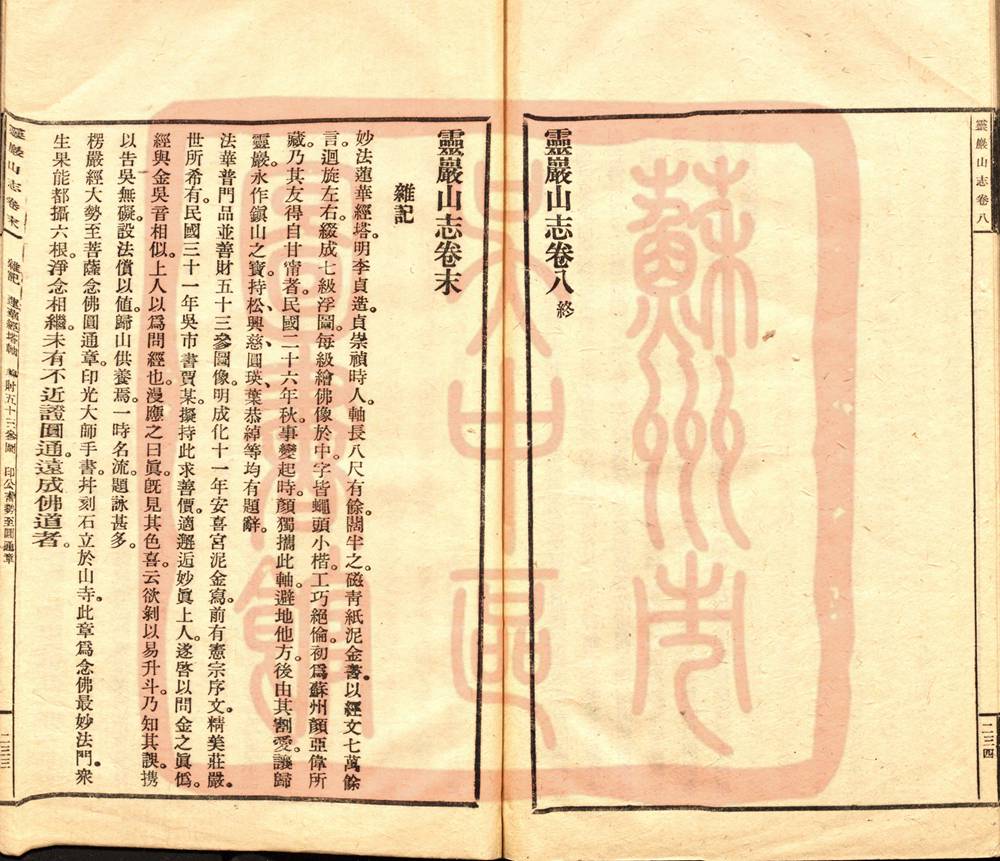 靈巖山志卷八
二三四
靈巖山志卷八 終
靈巖山志卷末
雜記
妙法蓮華經塔。明李貞造。貞崇禎時人。軸長八尺有餘。闊半之。磁青紙泥金書。以經文七萬餘
言。迴旋左右。綴成七級浮圖。每級繪佛像於中。字皆蠅頭小楷。工巧絕倫。初爲蘇州顏亞偉所
藏。乃其友得自甘肅者。民國二十六年秋。事變起時。顏獨攜此軸。避地他方。後由其割愛。讓歸
靈巖。永作鎭山之寶。持松、興慈、圓瑛、葉恭綽等均有題辭。
法華普門品並善財五十三參圖像。明成化十一年安喜宮泥金寫。前有憲宗序文。精美莊嚴。
世所希有。民國三十一年吳市書賈某。擬持此求善價。適邂逅妙眞上人。遂啓以問金之眞僞。
經與金吳音相似。上人以爲問經也。漫應之曰眞。旣見其色喜。云欲剝以易升斗。乃知其誤。携
以告吳無礙。設法償以値。歸山供養焉。一時名流。題詠甚多。
楞嚴經大勢至菩薩念佛圓通章。印光大師手書。幷刻石立於山寺。此章爲念佛最妙法門。衆
生果能都攝六根。淨念相繼。未有不近證圓通。遠成佛道者。
靈巖山志卷末
雜記 蓮華經塔軸 善財五十三參圖 印公書勢至圓通章
二三三
蘇州市
吳中區
圖書館